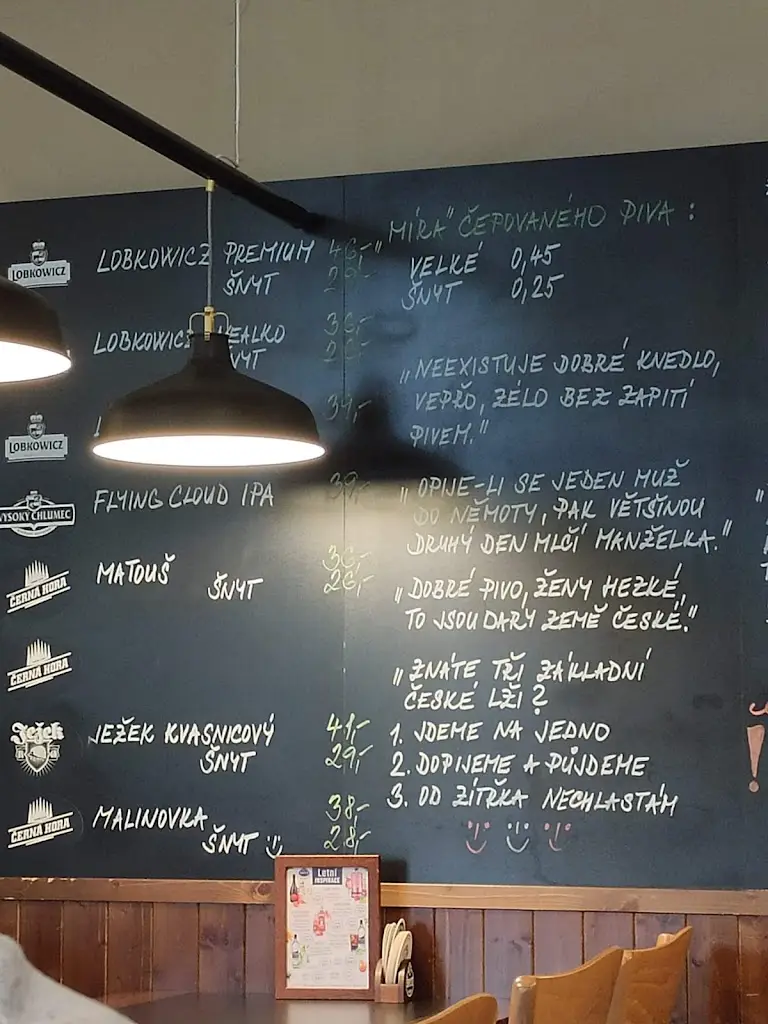 LOBKOWICZ
LOBKOWICZ PREMIUM 46,-
ŠNYT
LOBKOWICZ NEALKO
ŠNYT
LOBKOWICZ
34,-
VYSOKÝ CHLUMEC
FLYING CLOUD IPA 39,-
ČERNÁ HORA
MATOUŠ 36,-
ŠNYT 26,-
ČERNÁ HORA
Ježek
JEŽEK KVASNICOVÝ 41,-
ŠNYT 29,-
ČERNÁ HORA
MALINOVKA 38,-
ŠNYT 28,-
„MÍRA" ČEPOVANÉHO PIVA :
VELKÉ 0,45
ŠNYT 0,25
„NEEXISTUJE DOBRÉ KNEDLO,
VEPŘO, ZÉLO BEZ ZAPITÍ
PIVEM."
„OPIJE-LI SE JEDEN MUŽ
DO NĚMOTY, PAK VĚTŠINOU
DRUHÝ DEN MLČÍ MANŽELKA."
„DOBRÉ PIVO, ŽENY HEZKÉ,
TO JSOU DARY ZEMĚ ČESKÉ."
„ZNÁTE TŘI ZÁKLADNÍ
ČESKÉ LŽI?
1. JDEME NA JEDNO
2. DOPIJEME A PŮJDEME
3. OD ZÍTŘKA NECHLASTÁM
Letní
INSPIRACE